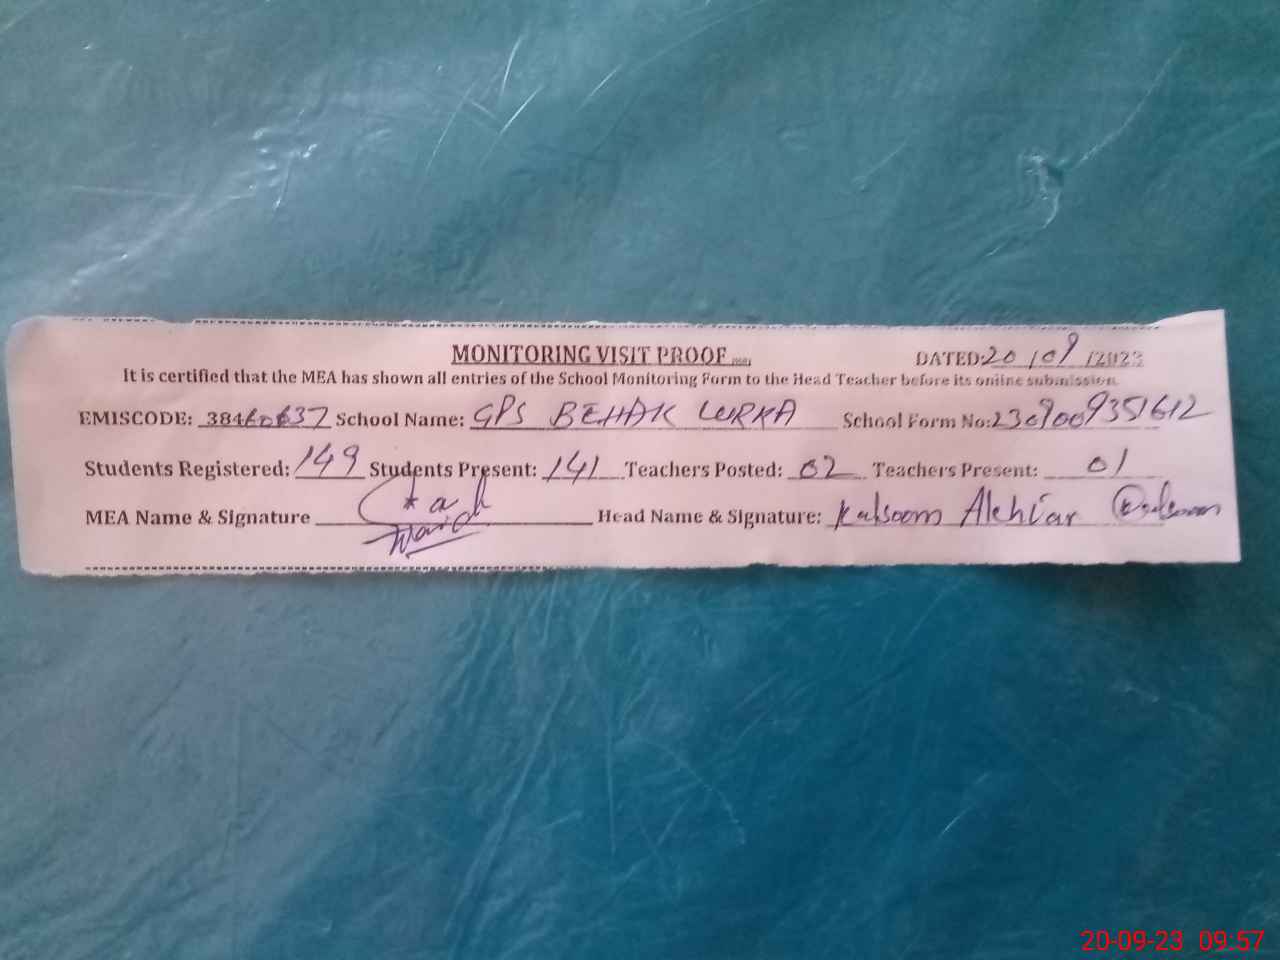 MONITORING VISIT PROOF
DATED: 20/09/2023
It is certified that the MEA has shown all entries of the School Monitoring Form to the Head Teacher before its online submission.
EMISCODE: 38460637 School Name: GPS BEHAK LURKA School Form No: 2309009351612
Students Registered: 149 Students Present: 141 Teachers Posted: 02 Teachers Present: 01
MEA Name & Signature Head Name & Signature: Kalsoom Akhtar Kalsoom
20-09-23 09:57